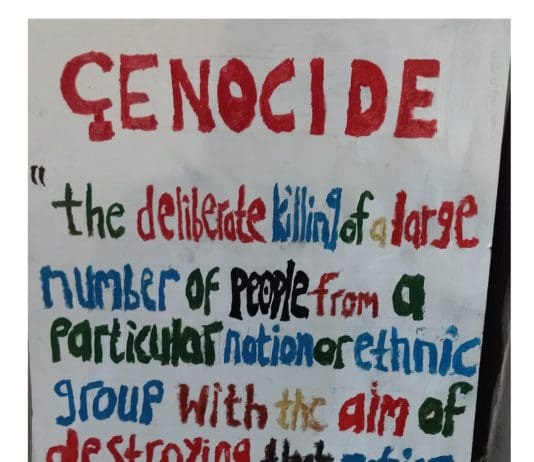 GENOCIDE
"the deliberate killing of a large
number of people from a
particular nation or ethnic
group with the aim of
destroying that nation